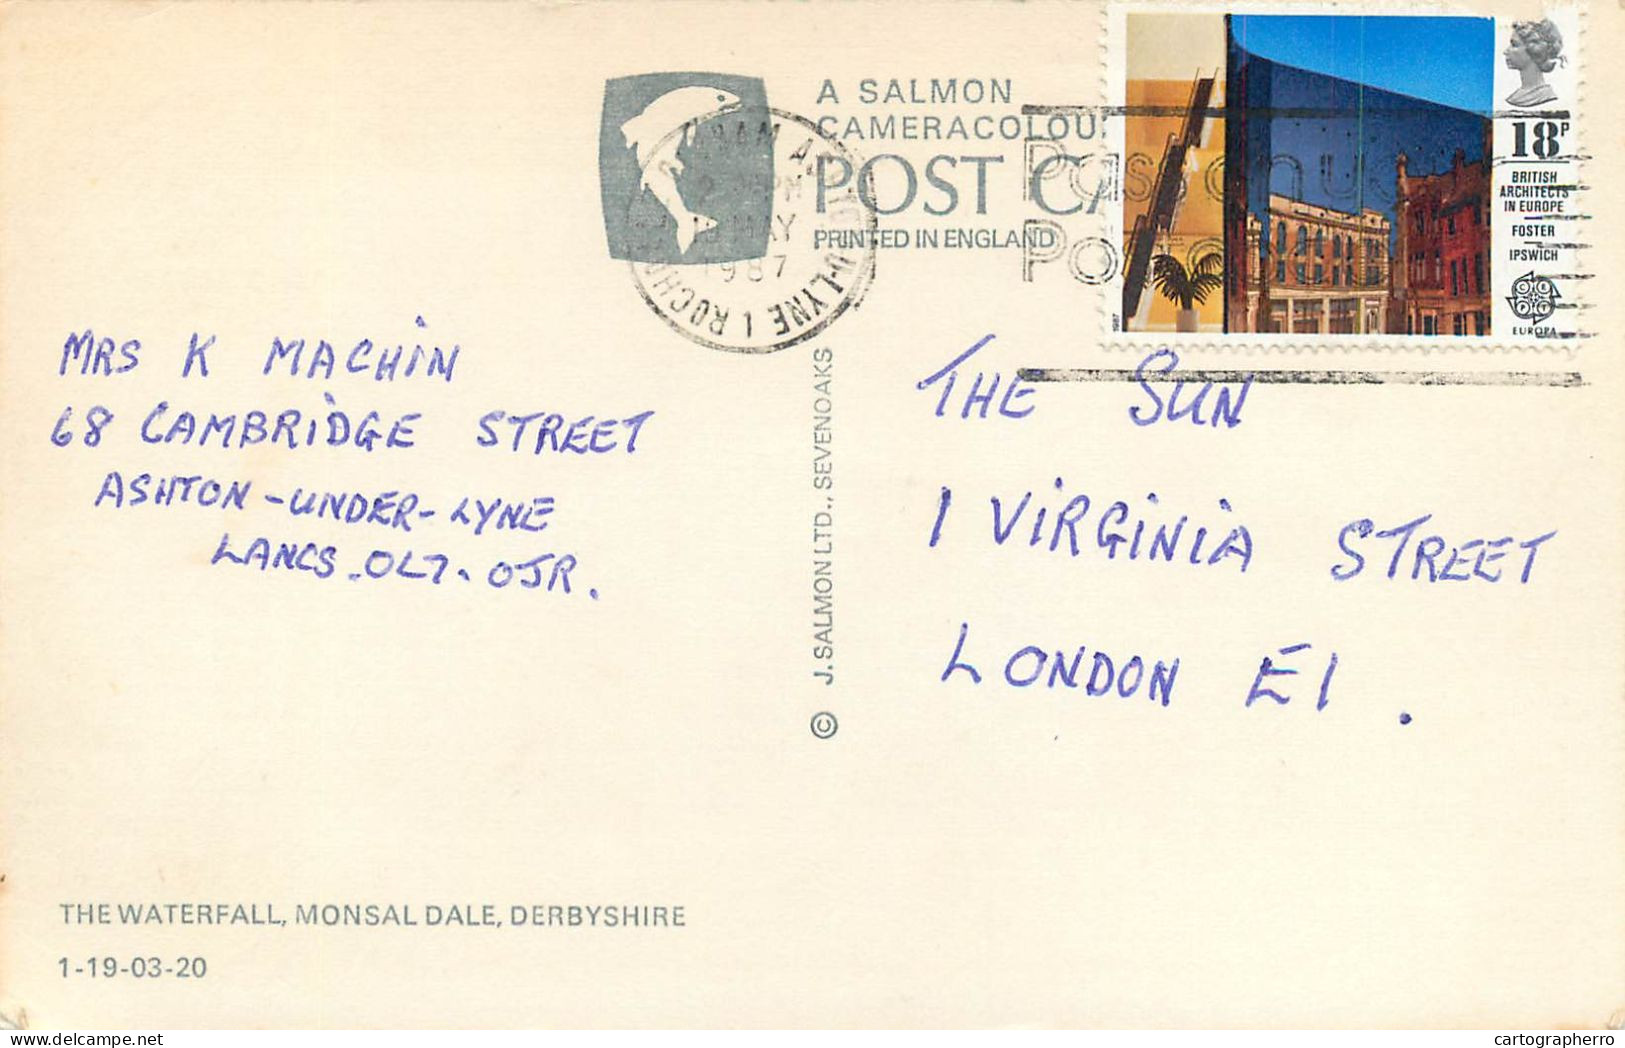 A SALMON
CAMERACOLOUR
POST CA
PRINTED IN ENGLAND
OLDHAM ASHTON-U-LYNE | ROCHD
PM
MAY
1987
Pass on
Po
18P
BRITISH
ARCHITECTS
IN EUROPE
FOSTER
IPSWICH
EUROPA
1987
MRS K MACHIN
68 CAMBRIDGE STREET
ASHTON-UNDER-LYNE
LANCS. OL7. OJR.
© J. SALMON LTD., SEVENOAKS
THE SUN
1 VIRGINIA STREET
LONDON E1.
THE WATERFALL, MONSAL DALE, DERBYSHIRE
1-19-03-20
cartographerro